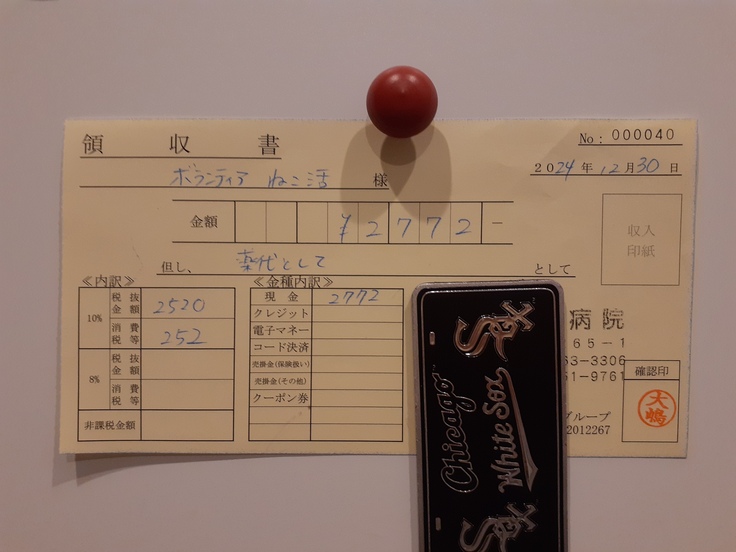 領収書
No: 000040
2024年12月30日
ボランティア ねこ活 様
金額 ¥2772-
収入
印紙
但し、薬代として として
≪内訳≫
10% 税抜金額 2520
消費税等 252
8% 税抜金額
消費税等
非課税金額
≪金種内訳≫
現金 2772
クレジット
電子マネー
コード決済
売掛金(保険扱い)
売掛金(その他)
クーポン券
病院
65-1
63-3306
61-9761
確認印
大嶋
グループ
2012267
Sox
Chicago
White Sox
Sox